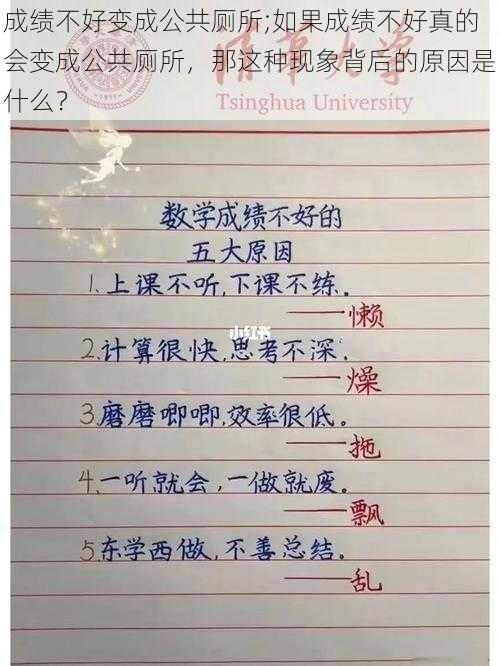 成绩不好变成公共厕所;如果成绩不好真的
会变成公共厕所，那这种现象背后的原因是
什么？
清华大学
Tsinghua University
数学成绩不好的
五大原因
1.上课不听,下课不练。
——懒
小红书
2.计算很快,思考不深.
——燥
3.磨磨唧唧,效率很低。
——拖
4.一听就会,一做就废。
——飘
5.东学西做,不善总结。
——乱